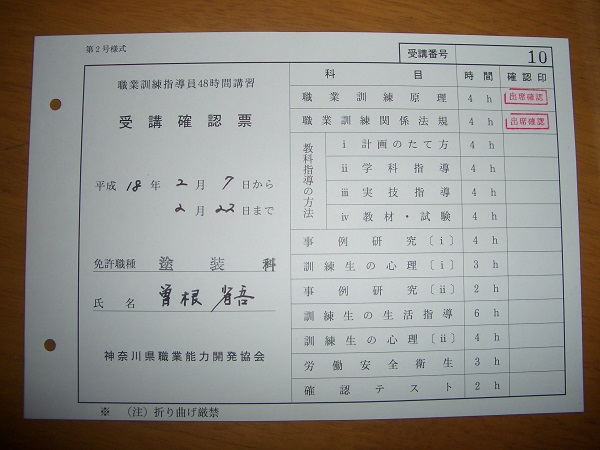 第2号様式
受講番号 10
職業訓練指導員48時間講習
受講確認票
平成 18 年 2 月 7 日から
2 月 22 日まで
免許職種 塗装科
氏名 曽根 省吾
神奈川県職業能力開発協会
科目 時間 確認印
職業訓練原理 4h 出席確認
職業訓練関係法規 4h 出席確認
教科指導の方法
i 計画のたて方 4h
ii 学科指導 4h
iii 実技指導 4h
iv 教材・試験 4h
事例研究〔i〕 4h
訓練生の心理〔i〕 3h
事例研究〔ii〕 2h
訓練生の生活指導 6h
訓練生の心理〔ii〕 4h
労働安全衛生 3h
確認テスト 2h
※ (注) 折り曲げ厳禁